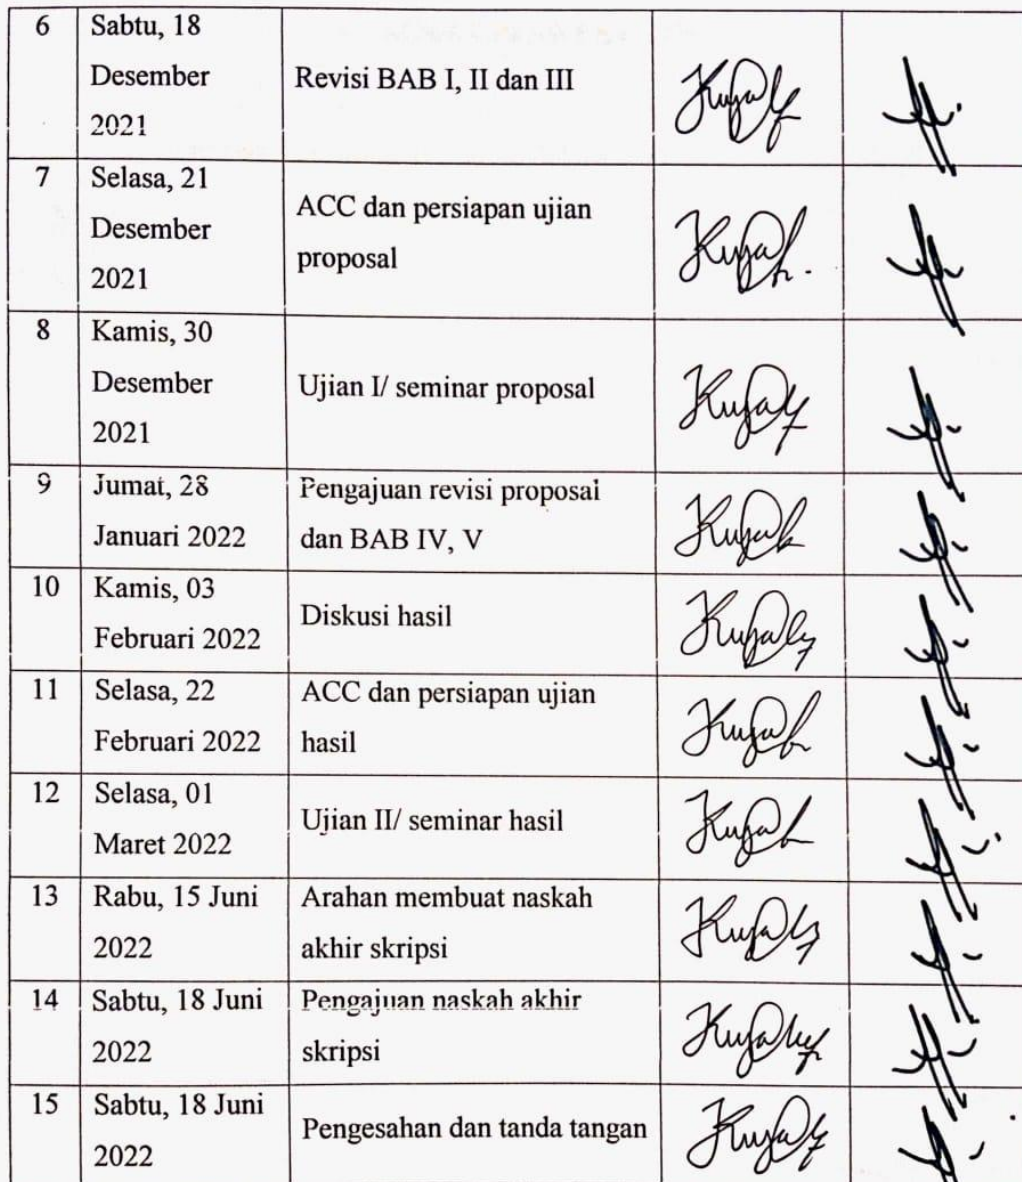 6 Sabtu, 18
Desember
2021
Revisi BAB I, II dan III
7 Selasa, 21
Desember
2021
ACC dan persiapan ujian
proposal
8 Kamis, 30
Desember
2021
Ujian I/ seminar proposal
9 Jumat, 28
Januari 2022
Pengajuan revisi proposal
dan BAB IV, V
10 Kamis, 03
Februari 2022
Diskusi hasil
11 Selasa, 22
Februari 2022
ACC dan persiapan ujian
hasil
12 Selasa, 01
Maret 2022
Ujian II/ seminar hasil
13 Rabu, 15 Juni
2022
Arahan membuat naskah
akhir skripsi
14 Sabtu, 18 Juni
2022
Pengajuan naskah akhir
skripsi
15 Sabtu, 18 Juni
2022
Pengesahan dan tanda tangan